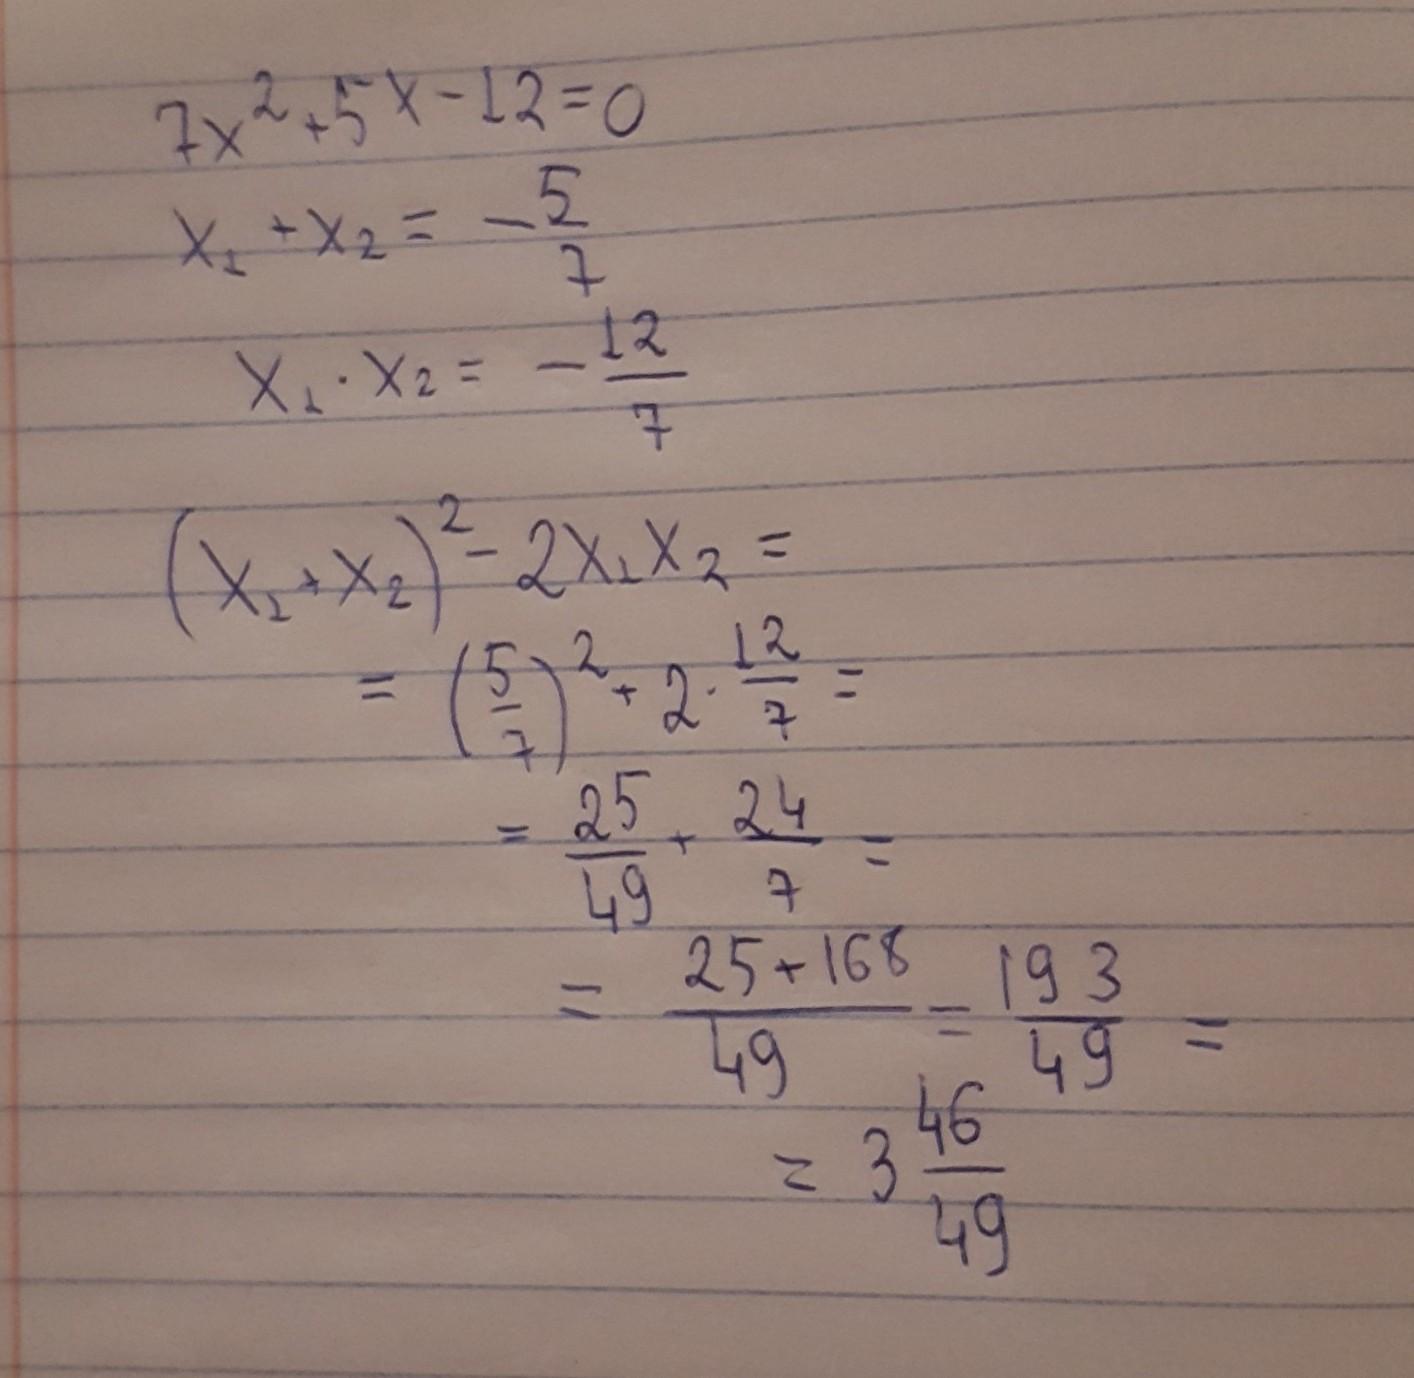 7x²+5x-12=0
x₁+x₂=-5/7
x₁·x₂=-12/7
(x₁+x₂)²-2x₁x₂=
=(5/7)²+2·12/7=
=25/49+24/7=
=(25+168)/49=193/49=
=3 46/49